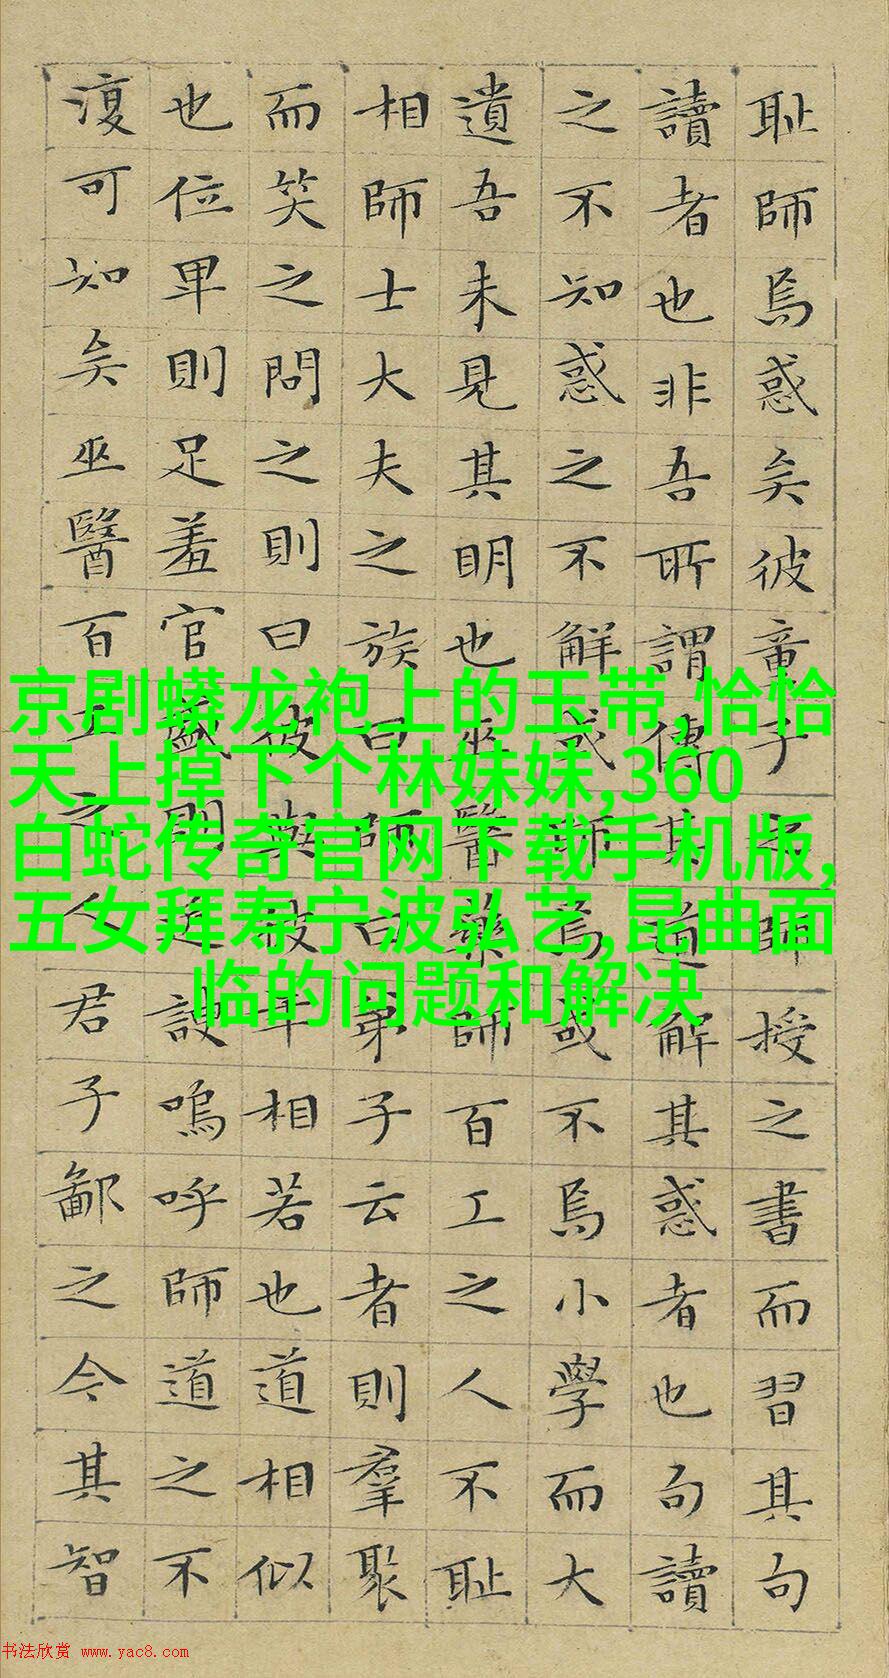 耻師焉惑矣彼童子之師授之書而習其句
讀者也非吾所謂傳其道解其惑者也句讀
之不知惑之不解或師焉或不焉小學而大
遺吾未見其明也巫醫藥師百工之人不耻
相師士大夫之族曰師曰弟子云者則羣聚
而笑之問之則曰彼與彼年相若也道相似
也位卑則足羞官盛則近諛嗚呼師道之不
復可知矣巫醫百工之人君子鄙之今其智
京剧蟒龙袍上的玉带,恰恰
天上掉下个林妹妹,360
白蛇传奇官网下载手机版,
五女拜寿宁波弘艺,昆曲面
临的问题和解决
书法欣赏 www.yac8.com